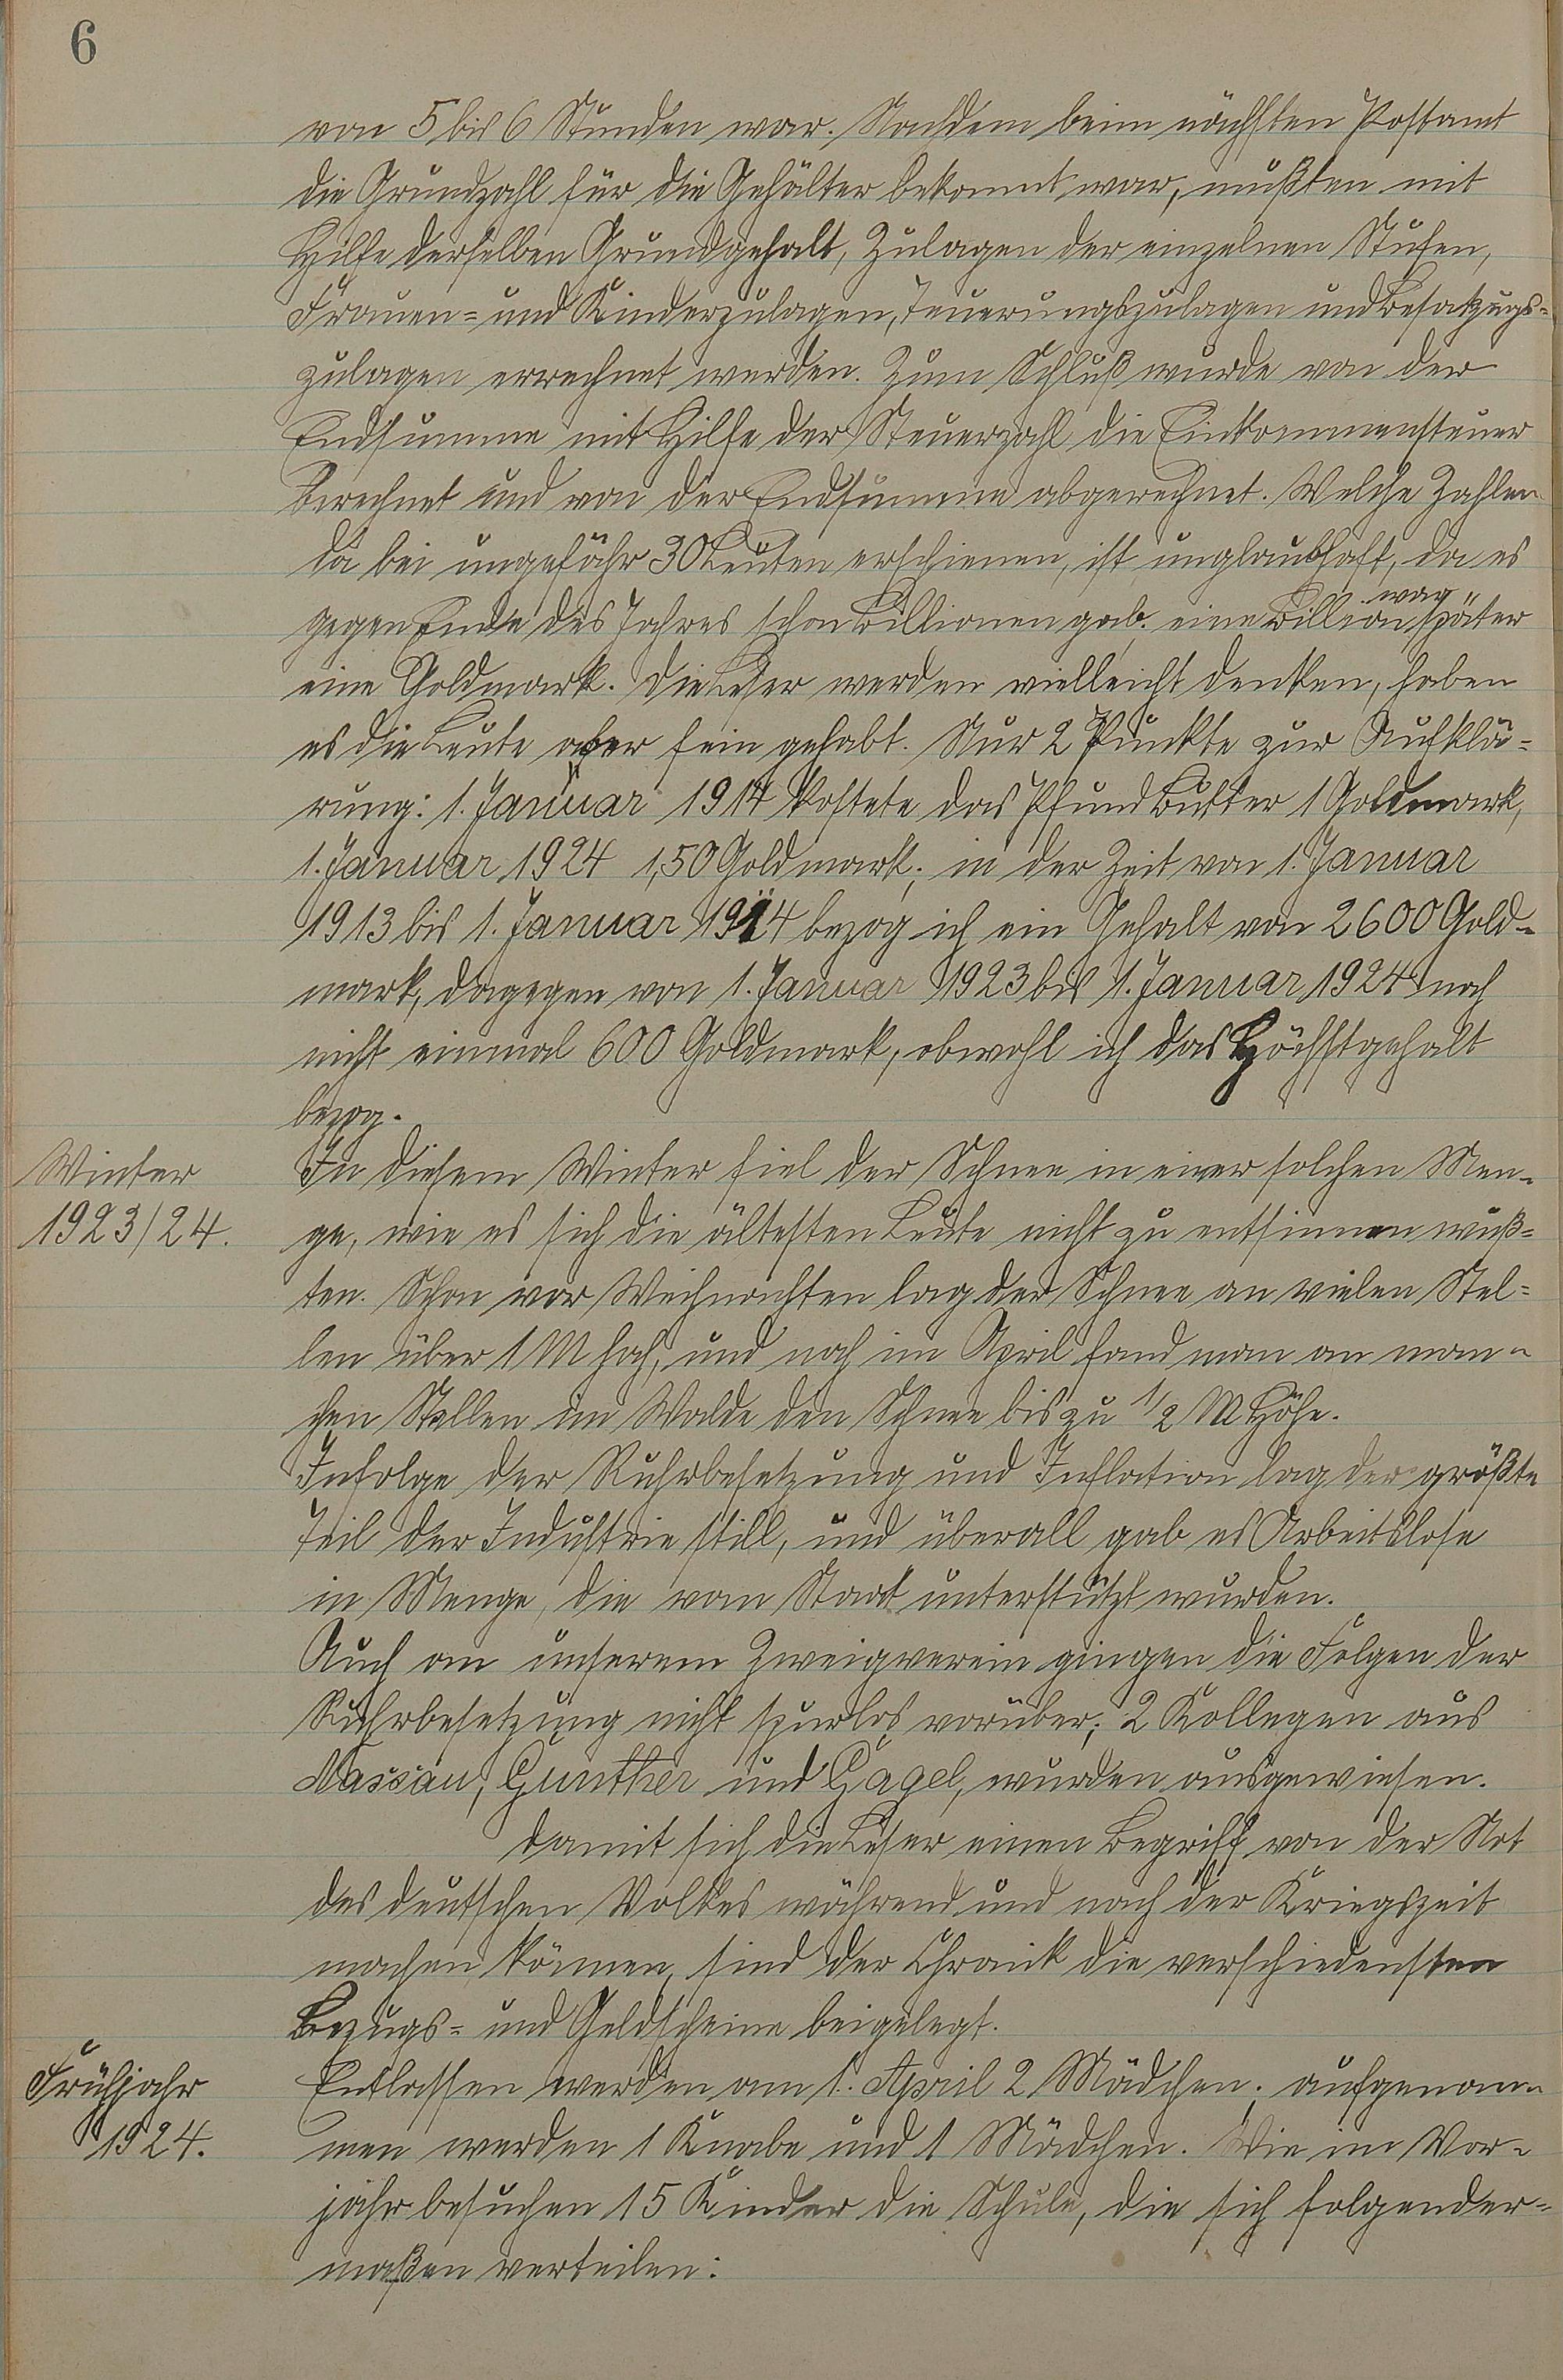 6
von 5 bis 6 Stunden war. Nachdem beim nächsten Postamt
die Grundzahl für die Gehälter bekannt war, mußten mit
Hilfe derselben Grundgehalt, Zulagen der einzelnen Stufen,
Frauen- und Kinderzulagen, Teuerungszulagen und Besatzungs-
zulagen errechnet werden. Zum Schluß wurde von der
Endsumme mit Hilfe der Steuerzahl die Einkommensteuer
berechnet und von der Endsumme abgerechnet. Welche Zahlen
da bei ungefähr 30 Leuten erschienen, ist unglaubhaft, da es
gegen Ende des Jahres schon Billionen gab. eine Billion war später
eine Goldmark. Die Leser werden vielleicht denken, haben
es die Leute aber fein gehabt. Nur 2 Punkte zur Aufklä-
rung: 1. Januar 1914 kostete das Pfund Butter 1 Goldmark,
1. Januar 1924 1,50 Goldmark; in der Zeit von 1. Januar
1913 bis 1. Januar 1914 bezog ich ein Gehalt von 2600 Gold-
mark, dagegen von 1. Januar 1923 bis 1. Januar 1924 noch
nicht einmal 600 Goldmark, obwohl ich das Höchstgehalt
bezog.
Winter
1923/24.
In diesem Winter fiel der Schnee in einer solchen Men-
ge, wie es sich die ältesten Leute nicht zu entsinnen wuß-
ten. Schon vor Weihnachten lag der Schnee an vielen Stel-
len über 1 M hoch, und noch im April fand man an man-
chen Stellen im Walde den Schnee bis zu 1/2 M Höhe.
Infolge der Ruhrbesetzung und Inflation lag der größte
Teil der Industrie still, und überall gab es Arbeitslose
in Menge, die vom Staat unterstützt wurden.
Auch an unserem Zweigverein gingen die Folgen der
Ruhrbesetzung nicht spurlos vorüber; 2 Kollegen aus
Nassau, Gunther und Gagel, wurden ausgewiesen.
Damit sich die Leser einen Begriff von der Not
des deutschen Volkes während und nach der Kriegszeit
machen können, sind der Chronik die verschiedensten
Bezugs- und Geldscheine beigelegt.
Frühjahr
1924.
Entlassen werden am 1. April 2 Mädchen; aufgenom-
men werden 1 Knabe und 1 Mädchen. Wie im Vor-
jahr besuchen 15 Kinder die Schule, die sich folgender-
maßen verteilen: